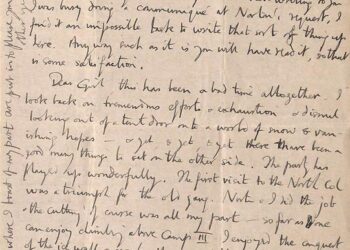 I was busy doing a communique at Norton's request, I
find it an impossible task to write that sort of thing up
here. Anyway such as it is you will have read it, & that
is some satisfaction.
Dear Girl this has been a bad time altogether. I
look back on tremendous effort & exhaustion & dismal
looking out of a tent door onto a world of snow & van-
ishing hopes — & yet, & yet, & yet there have been a
good many things to set on the other side. The party has
played up wonderfully. The first visit to the North Col
was a triumph for the old gang. Norton & I did the job
& the cutting of course was all my part — so far as one
can enjoy climbing above Camp III I enjoyed the conquest
of the ice wall
where I boast of my part are put in to please my